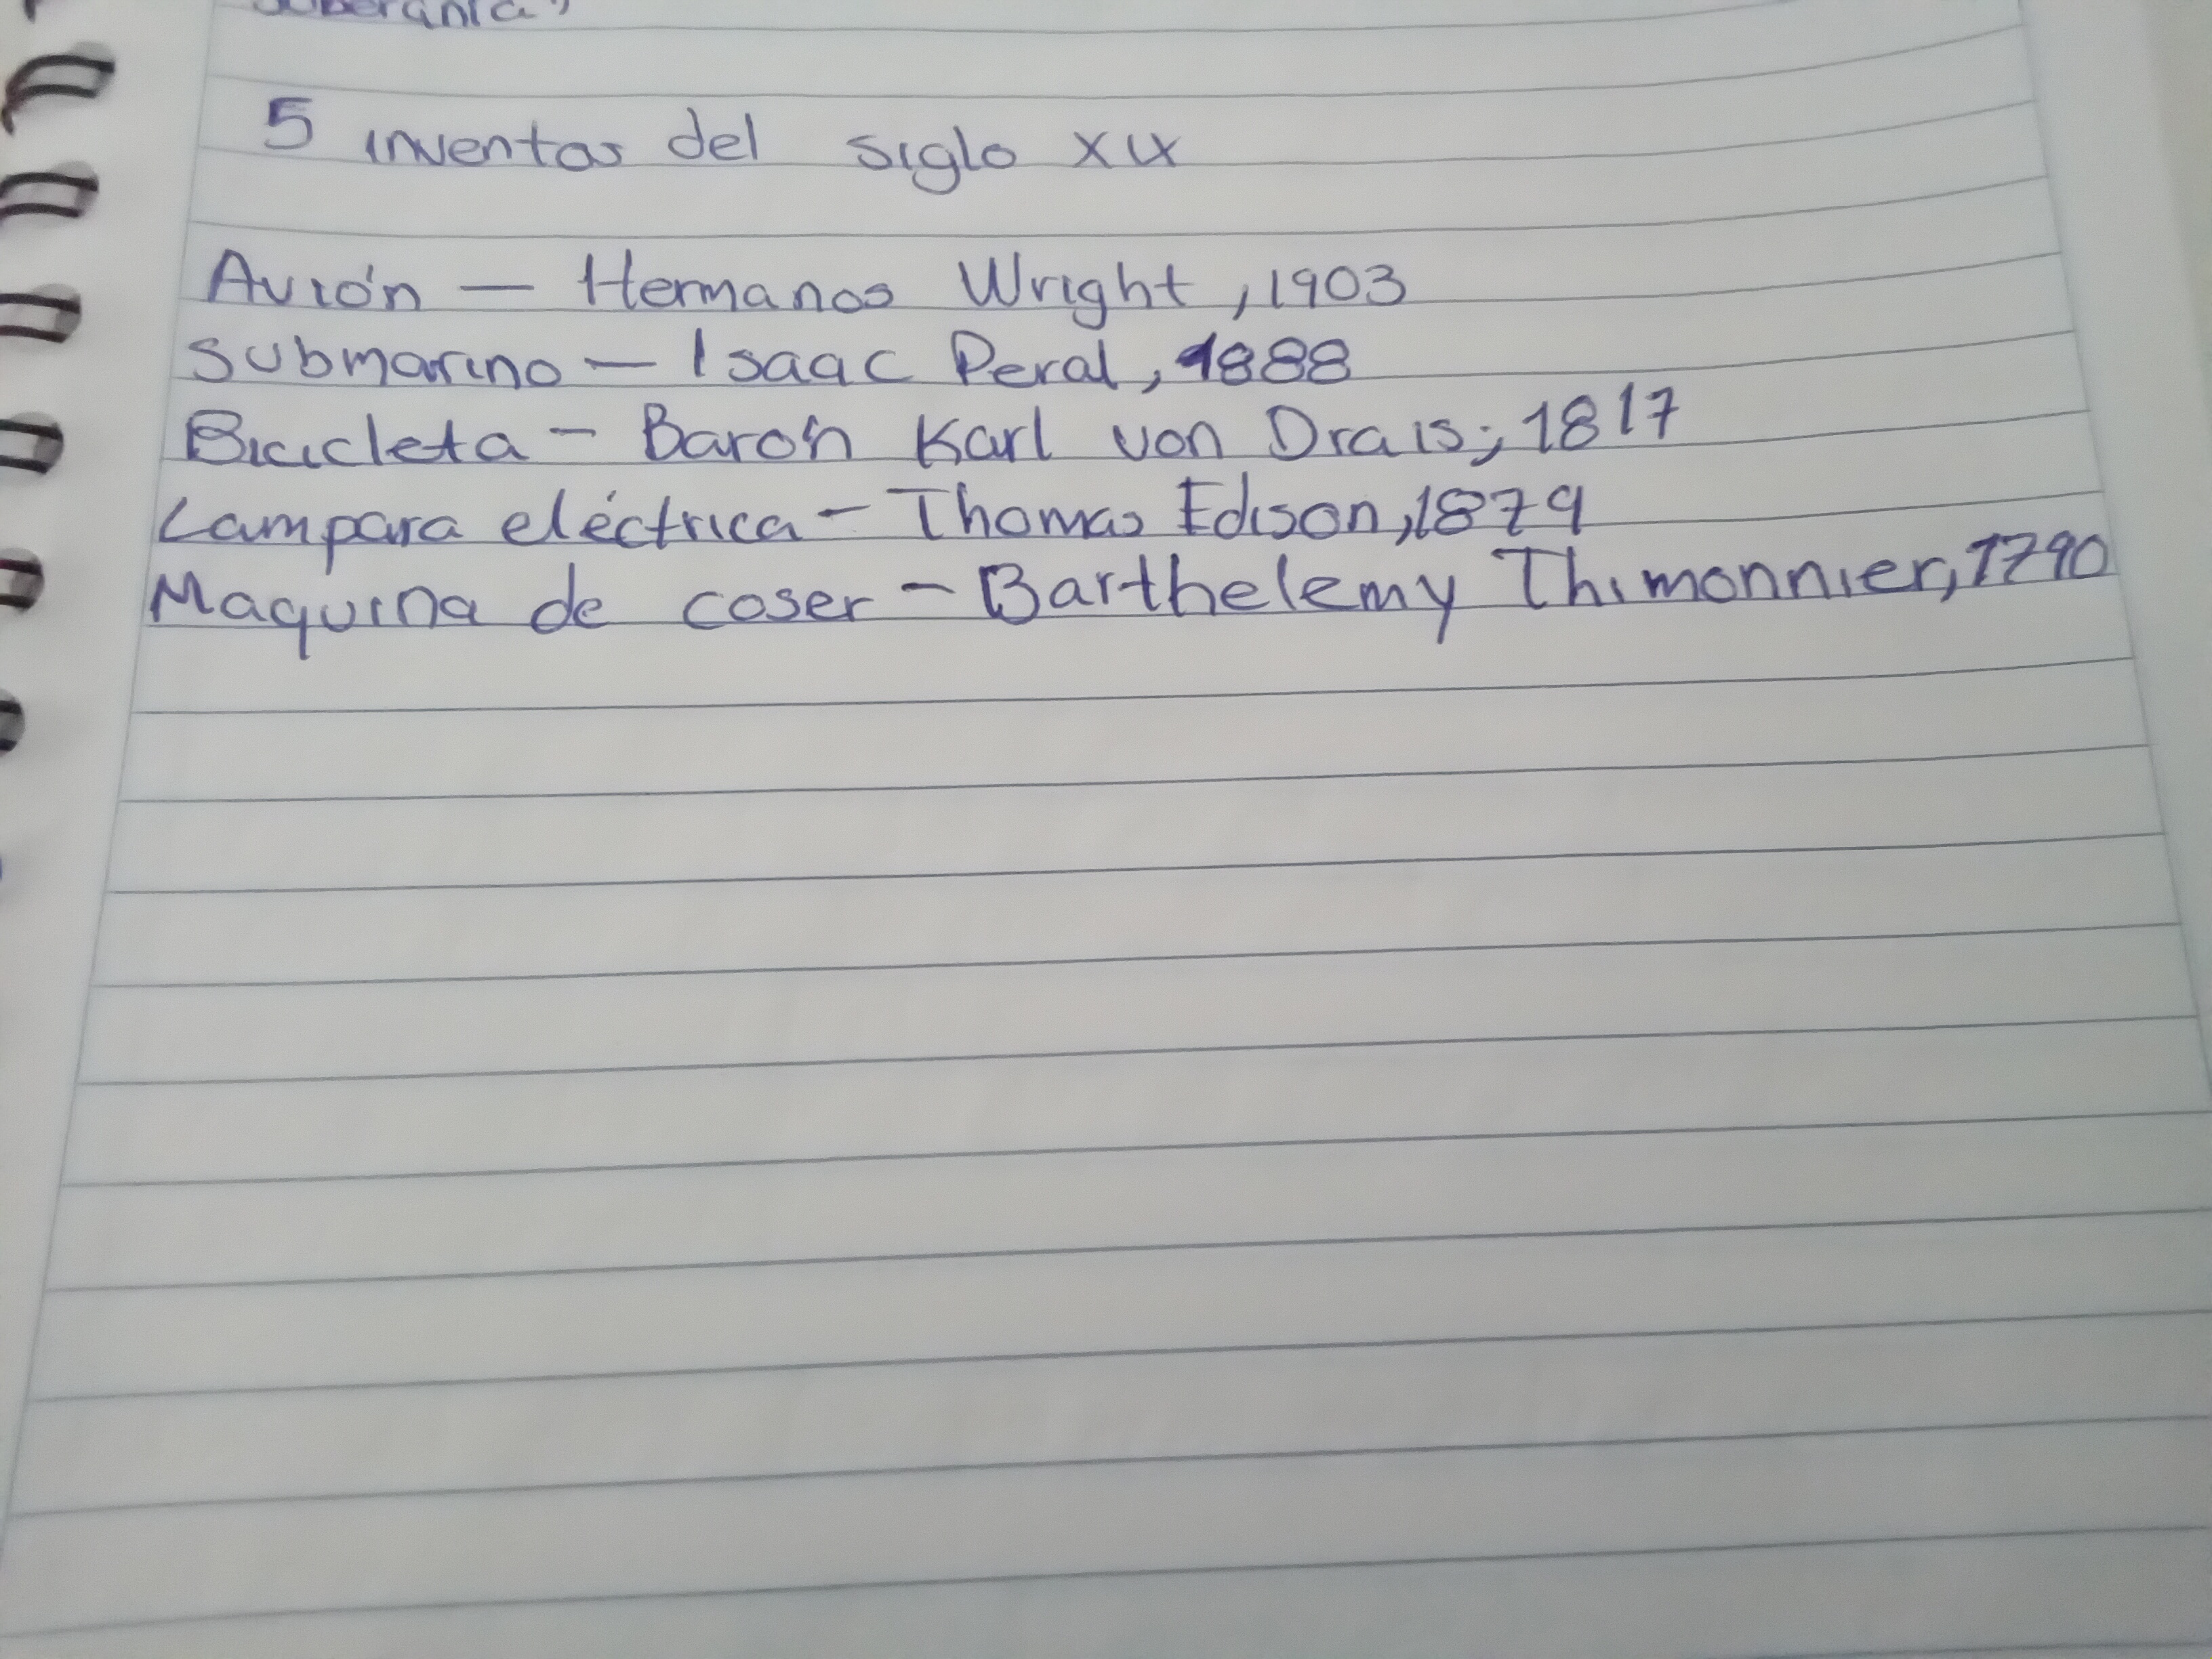 soberanía,
5 inventos del siglo XIX
Avión — Hermanos Wright, 1903
Submarino — Isaac Peral, 1888
Bicicleta - Barón Karl von Drais; 1817
Lampara eléctrica - Thomas Edison, 1879
Maquina de coser - Barthelemy Thimonnier, 1790